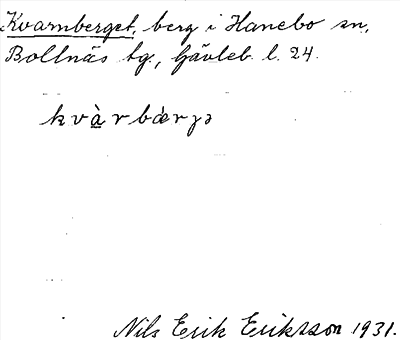 Kvarnberget, berg i Hanebo sn,
Bollnäs tg., Gävleb. l. 24.
kvàrbærjə
Nils Erik Eriksson 1931.